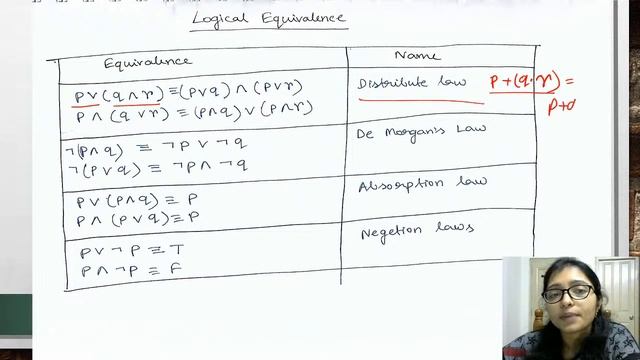 Logical Equivalence
Equivalence Name
p∨(q∧r)≡(p∨q)∧(p∨r) Distribute law p+(q·r)=
p+q
p∧(q∨r)≡(p∧q)∨(p∧r)
¬(p∧q) ≡ ¬p∨¬q De Morgan's Law
¬(p∨q) ≡ ¬p∧¬q
p∨(p∧q)≡P Absorption law
p∧(p∨q)≡P
p∨¬p≡T Negetion laws
p∧¬p≡F